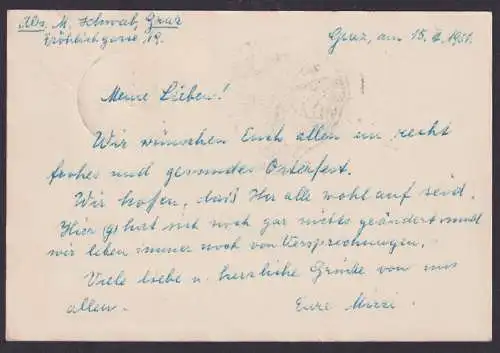 Abs. M. Schwab, Graz
Fröhlichgasse 19.
Graz, am 15. 1951.
Meine Lieben!
Wir wünschen Euch allen ein recht
frohes und gesundes Osterfest.
Wir hoffen, daß Ihr alle wohl auf seid.
Hier hat sich noch gar nichts geändert und
wir leben immer noch von Versprechnungen.
Viele liebe u. herzliche Grüße von uns
allen. Eure Mizzi.